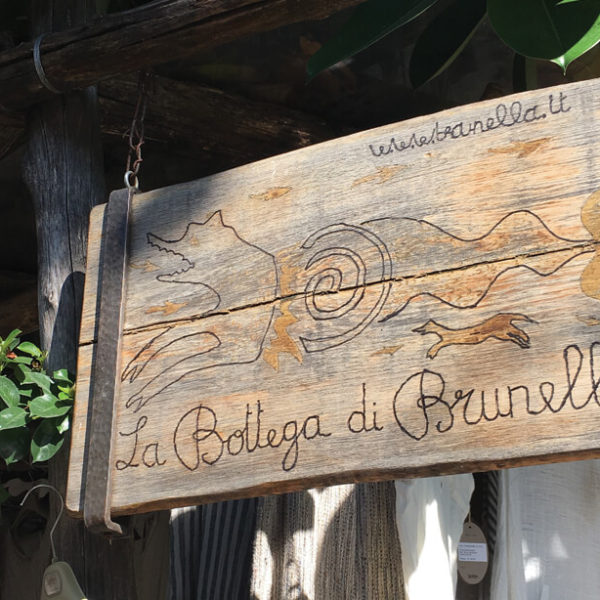 www.branella.it
La Bottega di Brunell